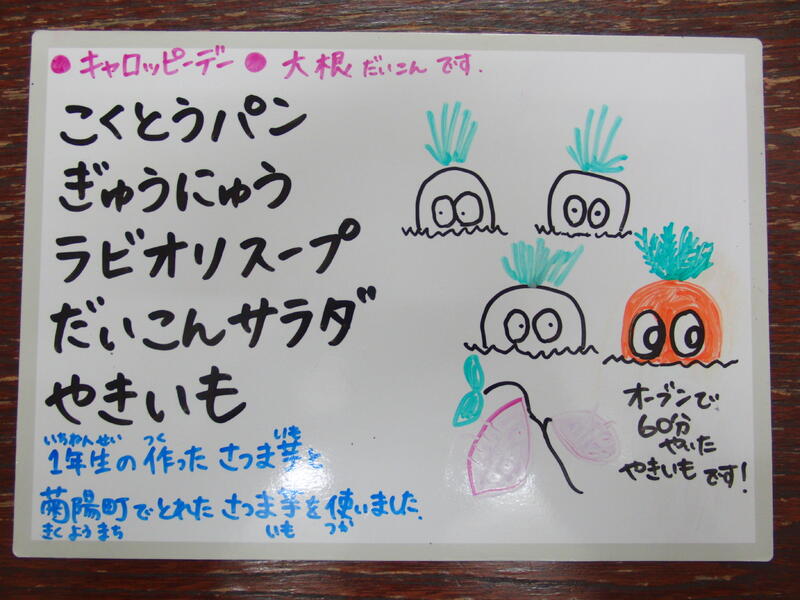 ● キャロッピーデー ● 大根 だいこん です.
こくとうパン
ぎゅうにゅう
ラビオリスープ
だいこんサラダ
やきいも
いちねんせい つく いも
1年生の作った さつま芋と
菊陽町でとれた さつま芋を使いました.
きくようまち いも つか
オーブンで
60分
やいた
やきいもです!